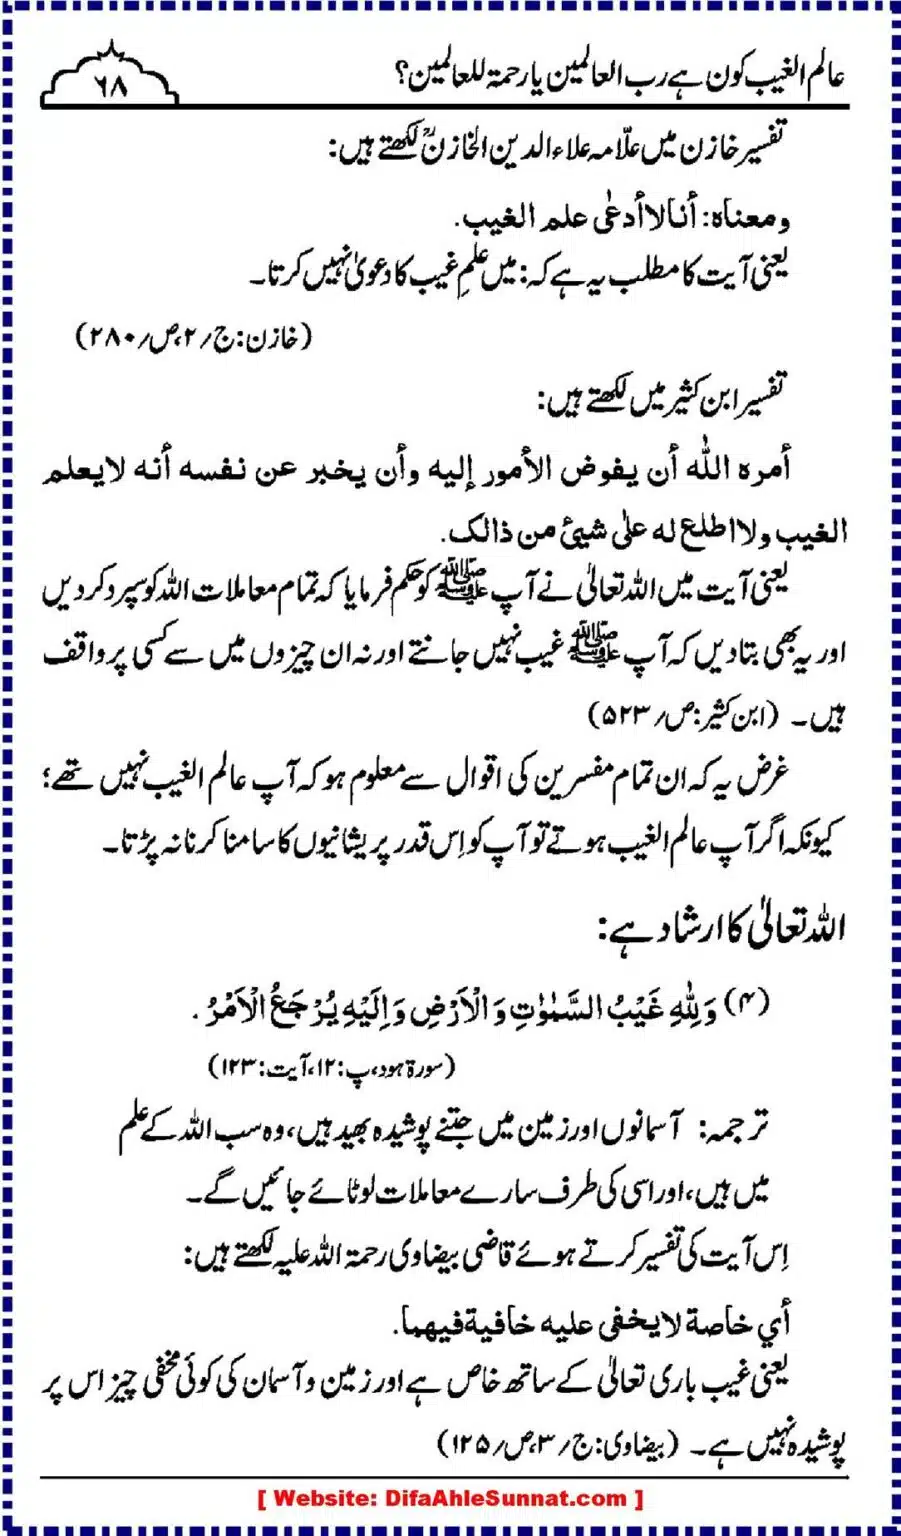 عالم الغیب کون ہے رب العالمین یا رحمۃ للعالمین؟
۶۸
تفسیر خازن میں علّامہ علاء الدین الخازنؒ لکھتے ہیں:
ومعناه: أنا لا أدعٰی علم الغيب.
یعنی آیت کا مطلب یہ ہے کہ: میں علمِ غیب کا دعویٰ نہیں کرتا۔
(خازن: ج؍۲،ص؍۲۸۰)
تفسیر ابن کثیر میں لکھتے ہیں:
أمره اللّٰه أن يفوض الأمور إليه وأن يخبر عن نفسه أنه لا يعلم
الغيب ولا اطلع له علىٰ شيئ من ذالک.
یعنی آیت میں اللہ تعالیٰ نے آپ ﷺ کو حکم فرمایا کہ تمام معاملات اللہ کو سپرد کردیں
اور یہ بھی بتادیں کہ آپ ﷺ غیب نہیں جانتے اور نہ ان چیزوں میں سے کسی پر واقف
ہیں۔ (ابن کثیر: ص؍۵۲۳)
غرض یہ کہ ان تمام مفسرین کی اقوال سے معلوم ہو کہ آپ عالم الغیب نہیں تھے؛
کیونکہ اگر آپ عالم الغیب ہوتے تو آپ کو اِس قدر پریشانیوں کا سامنا کرنا نہ پڑتا۔
اللہ تعالیٰ کا ارشاد ہے:
(۴) وَلِلّٰهِ غَيْبُ السَّمٰوٰتِ وَالْاَرْضِ وَاِلَيْهِ يُرْجَعُ الْاَمْرُ.
(سورۃ ہود، پ: ۱۲، آیت: ۱۲۳)
ترجمہ: آسمانوں اور زمین میں جتنے پوشیدہ بھید ہیں، وہ سب اللہ کے علم
میں ہیں، اور اسی کی طرف سارے معاملات لوٹائے جائیں گے۔
اِس آیت کی تفسیر کرتے ہوئے قاضی بیضاوی رحمۃ اللہ علیہ لکھتے ہیں:
أي خاصة لا يخفى عليه خافية فيهما.
یعنی غیب باری تعالیٰ کے ساتھ خاص ہے اور زمین و آسمان کی کوئی مخفی چیز اس پر
پوشیدہ نہیں ہے۔ (بیضاوی: ج؍۳،ص؍۱۲۵)
[ Website: DifaAhleSunnat.com ]